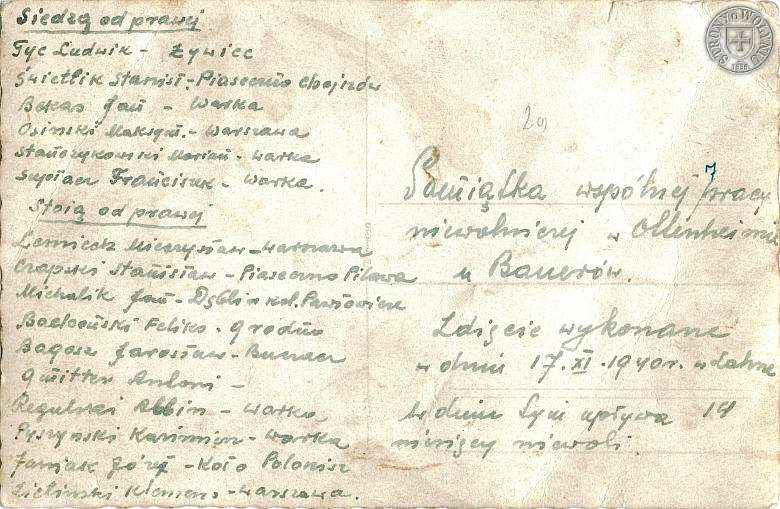 Siedzą od prawej
Tyc Ludwik - Żywiec
Świetlik Stanisł - Piaseczno Chojnów
Bekas Jań - Warka
Osinski Maksym. - Warszawa
Stańczykowski Mariań - Warka
Franciszek - Warka.
Stoją od prawej
Mieczysław - Warszawa
Czapski Stanisław - Piaseczno Pilawa
Michalik Jań - Dęblin kol. Pawłowice
Feliks - Grodno
Bagosz Jarosław - Buczacz
Gmitter Antoni -
Regulski Albin - Warka
Pyszyński Kazimierz - Warka
Janiak Józef - Koło
Zieliński Klemens - Warszawa.
20
7
Pamiątka wspólnej pracy
niewolniczej w Ottenheimu
u Bauerów.
Zdięcie wykonane
w dniu 17.XI.1940r. w Lahrze
W dniu tym upływa 14
miesięcy niewoli.
STRONY o WOŁYNIU